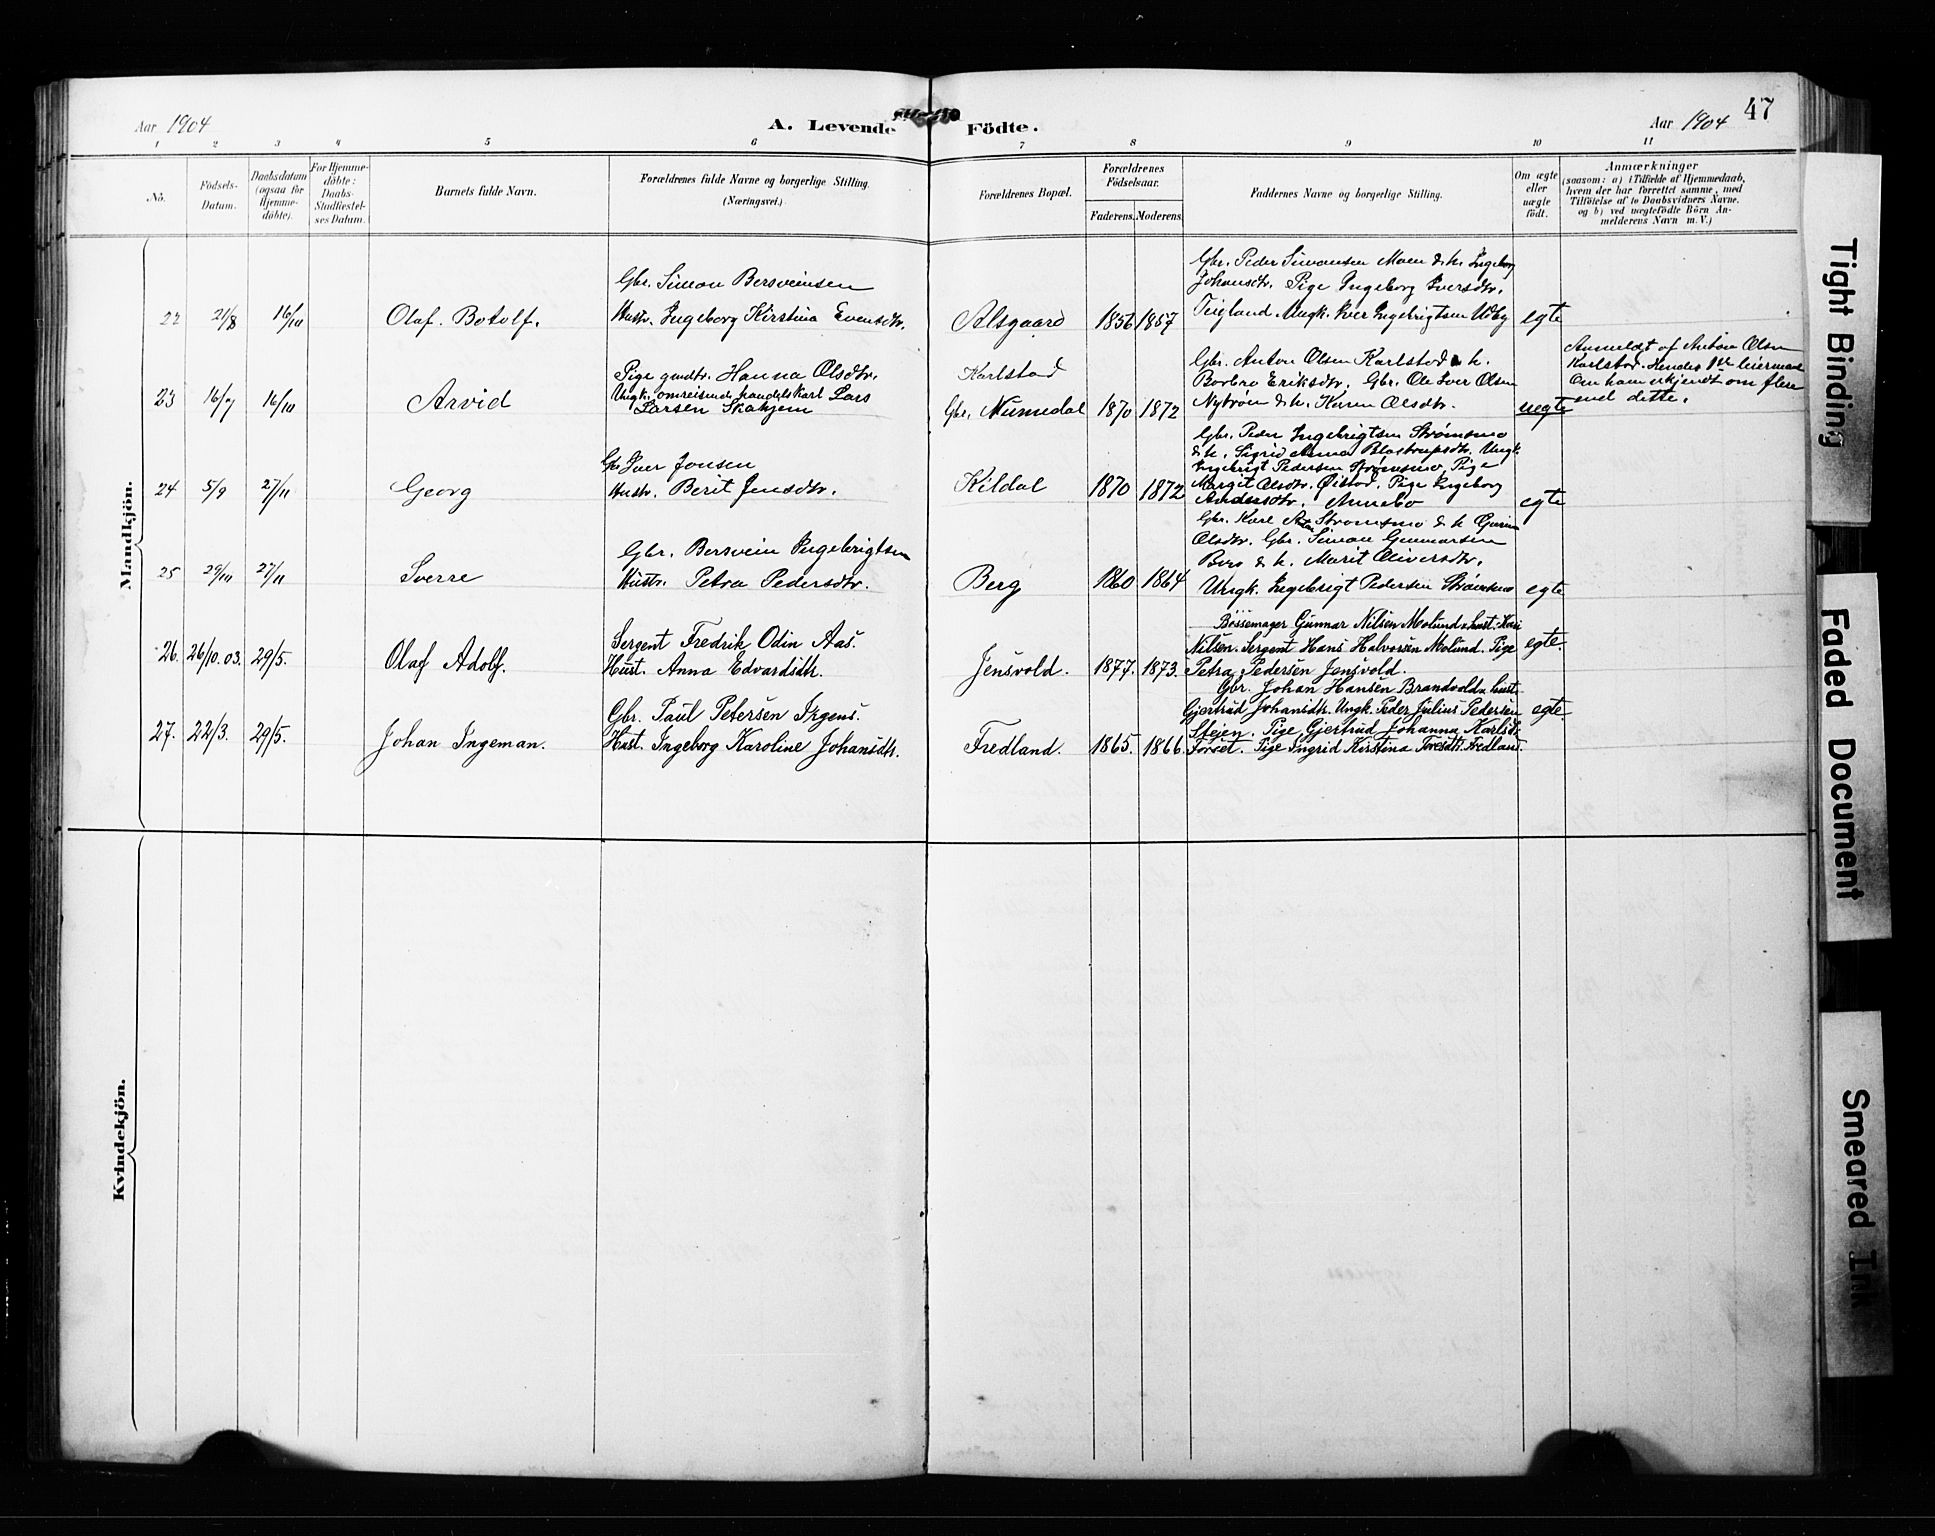 Aar 1904
A. Levende Födte.
Aar 1904
47
1 2 3 4 5 6 7 8 9 10 11
No.
Födsels-
Datum.
Daabsdatum
(ogsaa for
Hjemme-
döbte).
For Hjemme-
döbte:
Daabs-
Stadfæstel-
ses Datum.
Barnets fulde Navn.
Forældrenes fulde Navne og borgerlige Stilling.
(Næringsvei.)
Forældrenes Bopæl.
Forældrenes
Födselsaar.
Faderens. Moderens.
Faddernes Navne og borgerlige Stilling.
Om ægte
eller
uægte
födt.
Anmærkninger
(saasom: a) i Tilfælde af Hjemmedaab,
hvem der har forrettet samme, med
Tilföielse af to Daabsvidners Navne,
og b) ved uægtefödte Börn An-
melderens Navn m. V.)
Mandkjön.
22 21/8 16/10 Olaf. Botolf.
Gbr. Simon Bersveinsen
Hustr. Ingeborg Kirstina Evensdtr.
Alsgaard 1856 1857
Gbr. Peder Simonsen Moen & h. Ingeborg
Johansdtr. Pige Ingeborg Iversdtr.
Teigland. Ungk. Iver Ingebrigtsen Udby
egte
23 16/7 16/10 Arvid
Pige gmdtr. Hanna Olsdtr.
Ungk. omreisende handelskarl Lars
Larsen Skahjem
Karlstad
Gbr. Numedal 1870 1872
Gbr. Anton Olsen Karlstad & h.
Barbro Eriksdtr. Gbr. Ole Iver Olsen
Nybroen & h. Karen Olsdtr.
uegte
Anmeldt af Anton Olsen
Karlstad. Hendes 1ste leiermaal
om ham erkjendt om flere
end dette.
24 5/9 27/11 Georg
Gbr Iver Jonsen
Hustr. Berit Jensdtr.
Kildal 1870 1872
Gbr. Peder Ingebrigtsen Strømsmo
& h. Sigrid Anna Blostrupsdtr. Ungk.
Ingebrigt Pedersen Strømsmo, Pige
Margit Olsdtr. Øistad. Pige Ingeborg
Andersdtr. Annebo
egte
25 29/10 27/11 Sverre
Gbr. Bersvein Ingebrigtsen
Hustr. Petra Pedersdtr.
Berg 1860 1864
Gbr. Karl Strømsmo & h Gurine
Olsdtr. Gbr. Simon Gunnarsen
Berg & h. Marit Oliversdtr.
Ungk. Ingebrigt Pedersen Strømsmo
egte
26. 26/10.03. 29/5. Olaf Adolf.
Sergent Fredrik Odin Aas.
Hust. Anna Edvardsdtr.
Jensvold. 1877. 1873.
Bøssemager Gunnar Nilsen Molund & hust. Kari
Nilsen. Sergent Hans Halvorsen Molund. Pige
Petra Pedersen Jensvold.
egte.
27. 22/3. 29/5. Johan Ingeman.
Gbr. Paul Petersen Irgens.
Hust. Ingeborg Karoline Johansdtr.
Fredland. 1865. 1866.
Gbr. Johan Hansen Brandvold & hust.
Gjertrud Johansdtr. Ungk. Peder Julius Pedersen
Steien. Pige Gjertrud Johanna Karlsdtr.
Forset. Pige Ingrid Kirstina Toresdtr. Fredland.
egte
Kvindekjön.
Tight Binding
Faded Document
Smeared Ink